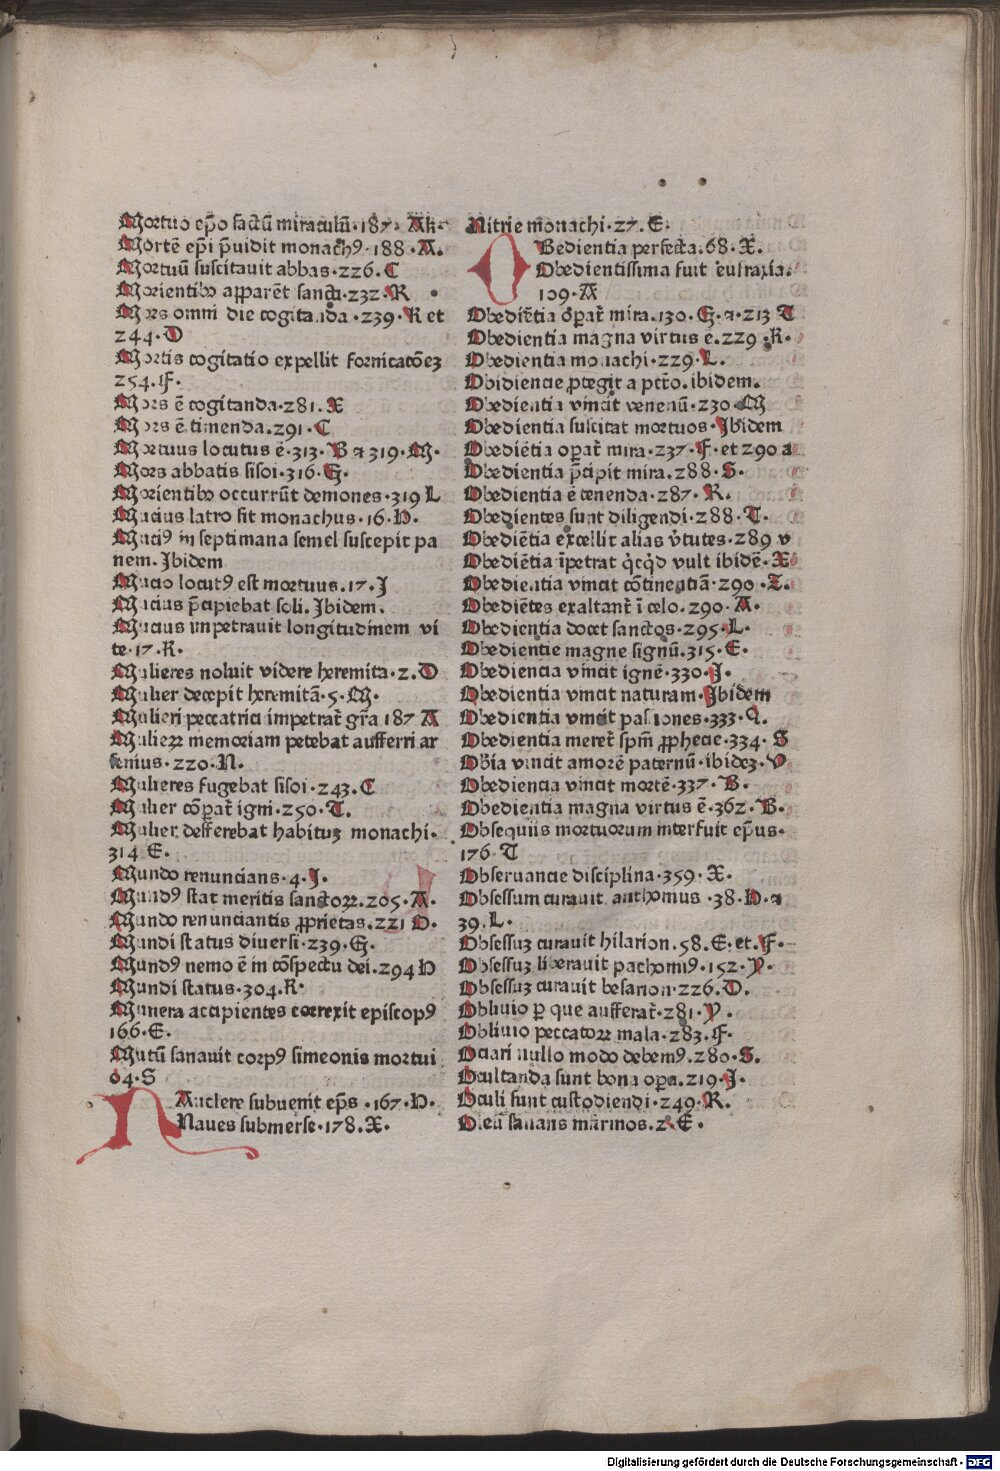 Mortuo ep̄o factū miraculū·187· Ak·
Mortē ep̄i p̄uidit monachꝰ·188·A.
Mortuū suscitauit abbas·226.C
Morientibꝰ apparēt sancti·232·R
Mors omni die cogitanda·239·R et
244·D
Mortis cogitatio expellit fornicatōeꝫ
254.F·
Mors ē cogitanda·281.X
Mors ē timenda.291·C
Mortuus locutus ē·313·B ⁊ 319·M·
Mors abbatis sisoi·316·G·
Morientibꝰ occurrūt demones·319 L
Mucius latro fit monachus·16·H·
Muciꝰ in septimana semel suscepit pa
nem. Ibidem
Mucio locutꝰ est mortuus.17·I
Mucius p̄cipiebat soli. Ibidem.
Mucius impetrauit longitudinem vi
te·17·R·
Mulieres noluit videre heremita·2·D
Mulier decepit heremitā·5·M·
Mulieri peccatrici impetrat᷑ gr̄a 187 A
Mulieꝝ memoriam petebat aufferri ar
senius·220·N·
Mulieres fugebat sisoi·243·C
Mulier cōꝑat᷑ igni·250·T.
Mulier defferebat habituꝫ monachi·
314 E·
Mundo renuncians·4·I·
Mundꝰ stat meritis sanctoꝝ.205·A·
Mundo renunciantis ꝓprietas.221 D·
Mundi status diuersi·239·G·
Mundꝰ nemo ē in cōspectu dei.294 H
Mundi status·304.R·
Munera accipientes correxit episcopꝰ
166·E·
Mutū sanauit corpꝰ simeonis mortui
64·S
NAuclere subuenit ep̄s ·167·H·
Naues submerse·178.X·
Nitrie monachi·27·E·
OBedientia perfecta.68·X.
Obedientissima fuit eufraxia.
109·A
Obediētia oꝑat᷑ mira.130·G·⁊·213 T
Obedientia magna virtus ē.229·R·
Obedientia monachi·229·L·
Obidiencie ꝓtegit a pctō.ibidem.
Obedientia vincit venenū·230·M
Obedientia suscitat mortuos·Ibidem
Obediētia oꝑat᷑ mira·237·F·et 290 a
Obedientia p̄cipit mira.288·S·
Obedientia ē tenenda·287·R.
Obedientes sunt diligendi·288·T·
Obediētia excellit alias v̓tutes·289 v
Obediētia īpetrat q̓cq̓d vult ibidē·X
Obedientia vincit cōtinentiā·290·Z.
Obediētes exaltant᷑ ī celo.290·A·
Obedientia docet sanctos·295·L·
Obedientie magne signū.315·E·
Obediencia vincit ignē·330·I·
Obedientia vincit naturam·Ibidem
Obedientia vincit passiones·333·Q.
Obedientia meret᷑ spm̄ ꝓphecie·334·S
Ob̄ia vincit amorē paternū·ibideꝫ·V
Obediencia vincit mortē·337·B·
Obedientia magna virtus ē·362·B·
Obsequiis mortuorum interfuit ep̄us·
176·T
Obseruancie disciplina·359·X·
Obsessum curauit anthonius·38·H·⁊
39.L·
Obsessuꝫ curauit hilarion.58.E·et·F·
Obsessuꝫ liberauit pachomiꝰ·152·Y·
Obsessuꝫ curauit besarion·226.D.
Obliuio ꝑ que aufferat᷑·281·Y·
Obliuio peccatoꝝ mala·283.F·
Ociari nullo modo debemꝰ.280·S.
Ocultanda sunt bona oꝑa.219·I·
Oculi sunt custodiendi·249·R.
Oleū sanans marinos.2·E·
Digitalisierung gefördert durch die Deutsche Forschungsgemeinschaft - DFG